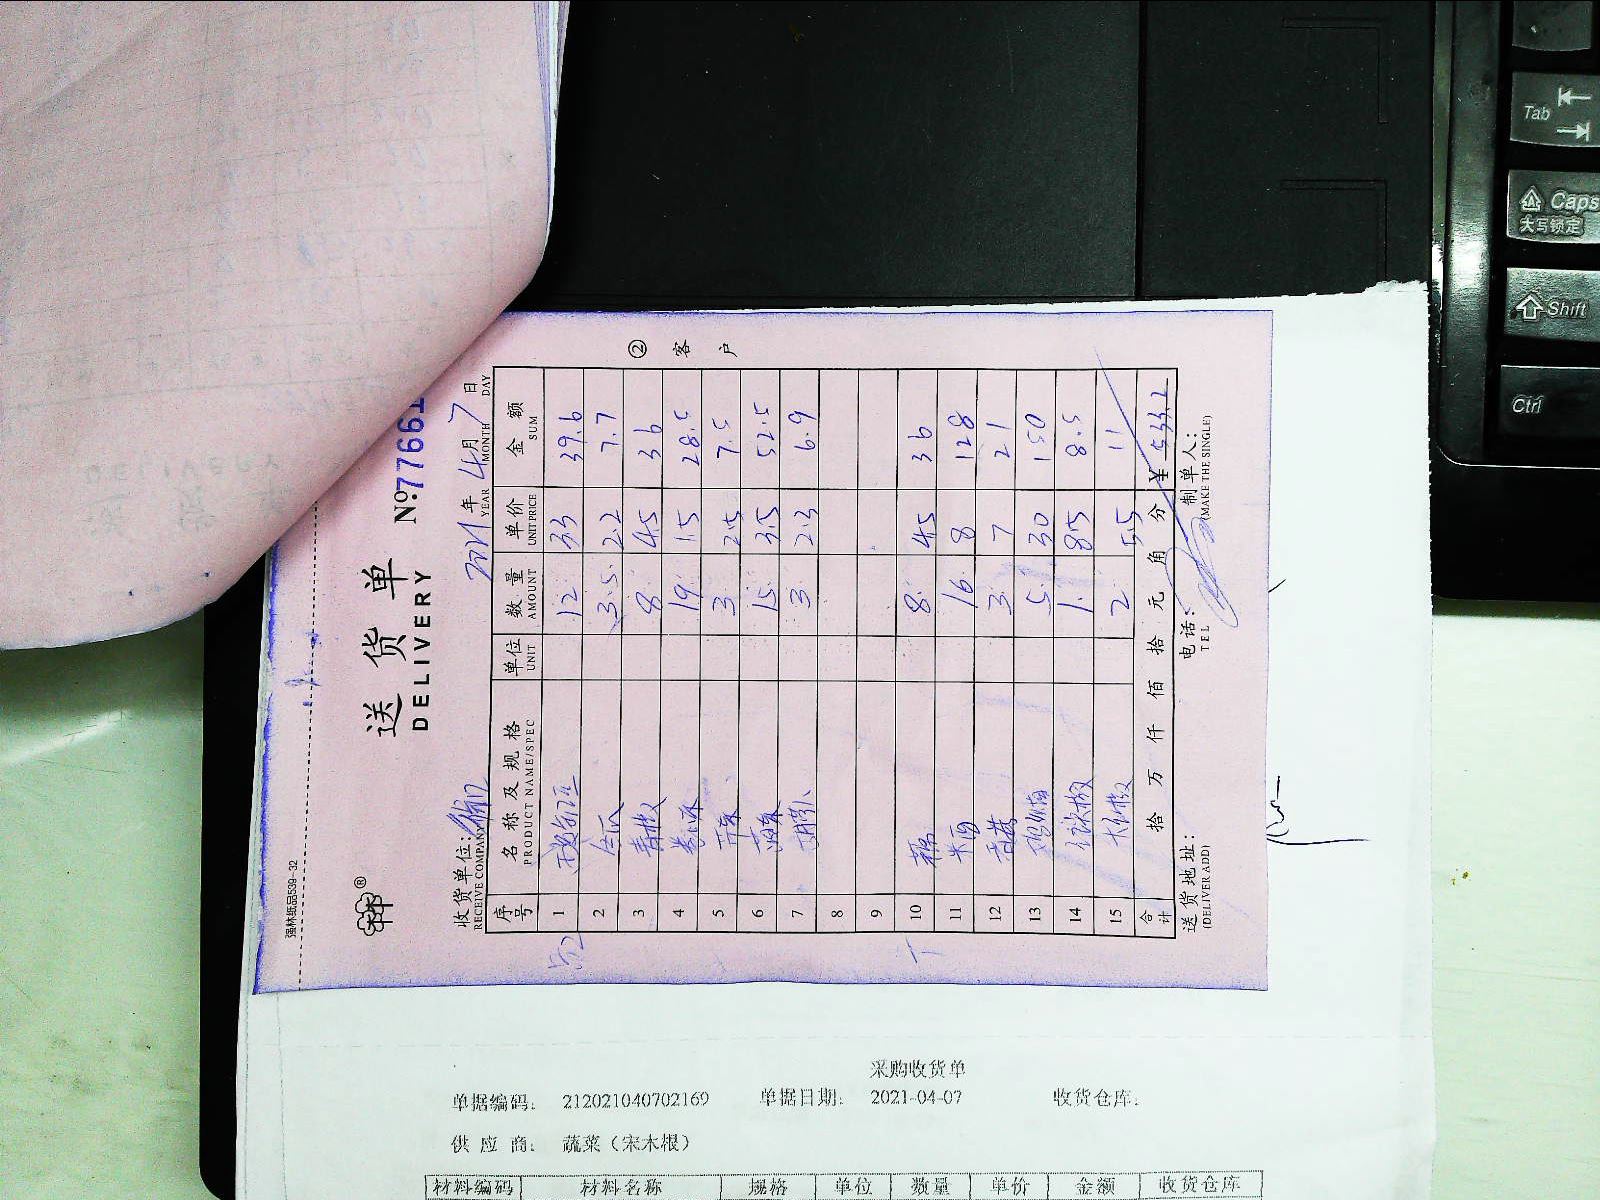 强林纸品539-32
送货单
DELIVERY
No:77661
收货单位:
RECEIVE COMPANY
2021年4月7日
YEAR MONTH DAY
序号 名称及规格 单位 数量 单价 金额
PRODUCT NAME/SPEC UNIT AMOUNT UNIT PRICE SUM
1 12 33 39.6
2 3.5 2.2 7.7
3 青椒 8 45 36
4 19 15 28.5
5 3 25 7.5
6 15 35 52.5
7 3 2.3 6.9
8
9
10 藕 8 45 36
11 16 8 128
12 3 7 21
13 5 30 150
14 1 85 8.5
15 2 5.5 11
合计 拾 万 仟 佰 拾 元 角 分 ¥ 533.2
送货地址: 电话: 制单人:
(DELIVER ADD) TEL (MAKE THE SINGLE)
② 客户
采购收货单
单据编码: 212021040702169 单据日期: 2021-04-07 收货仓库:
供应商: 蔬菜(宋木根)
材料编码 材料名称 规格 单位 数量 单价 金额 收货仓库
Tab
Caps
大写锁定
Shift
Ctrl